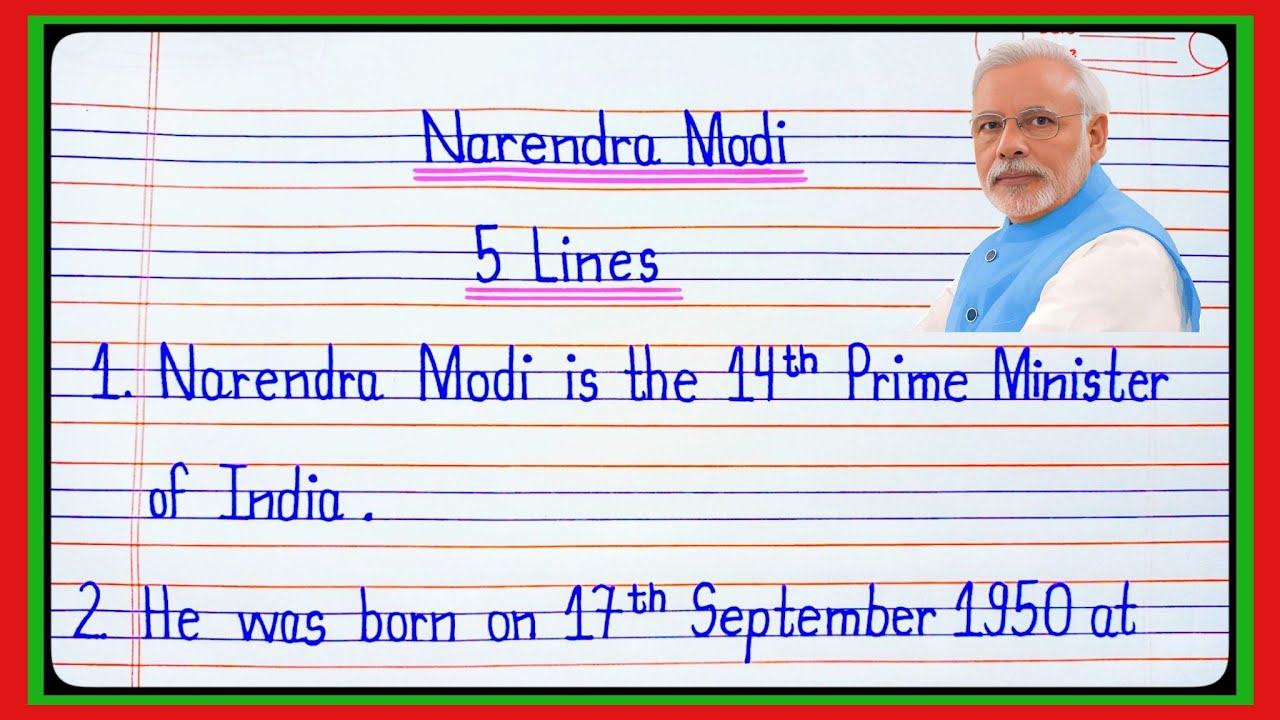 Narendra Modi
5 Lines
1. Narendra Modi is the 14th Prime Minister
of India.
2. He was born on 17th September 1950 at